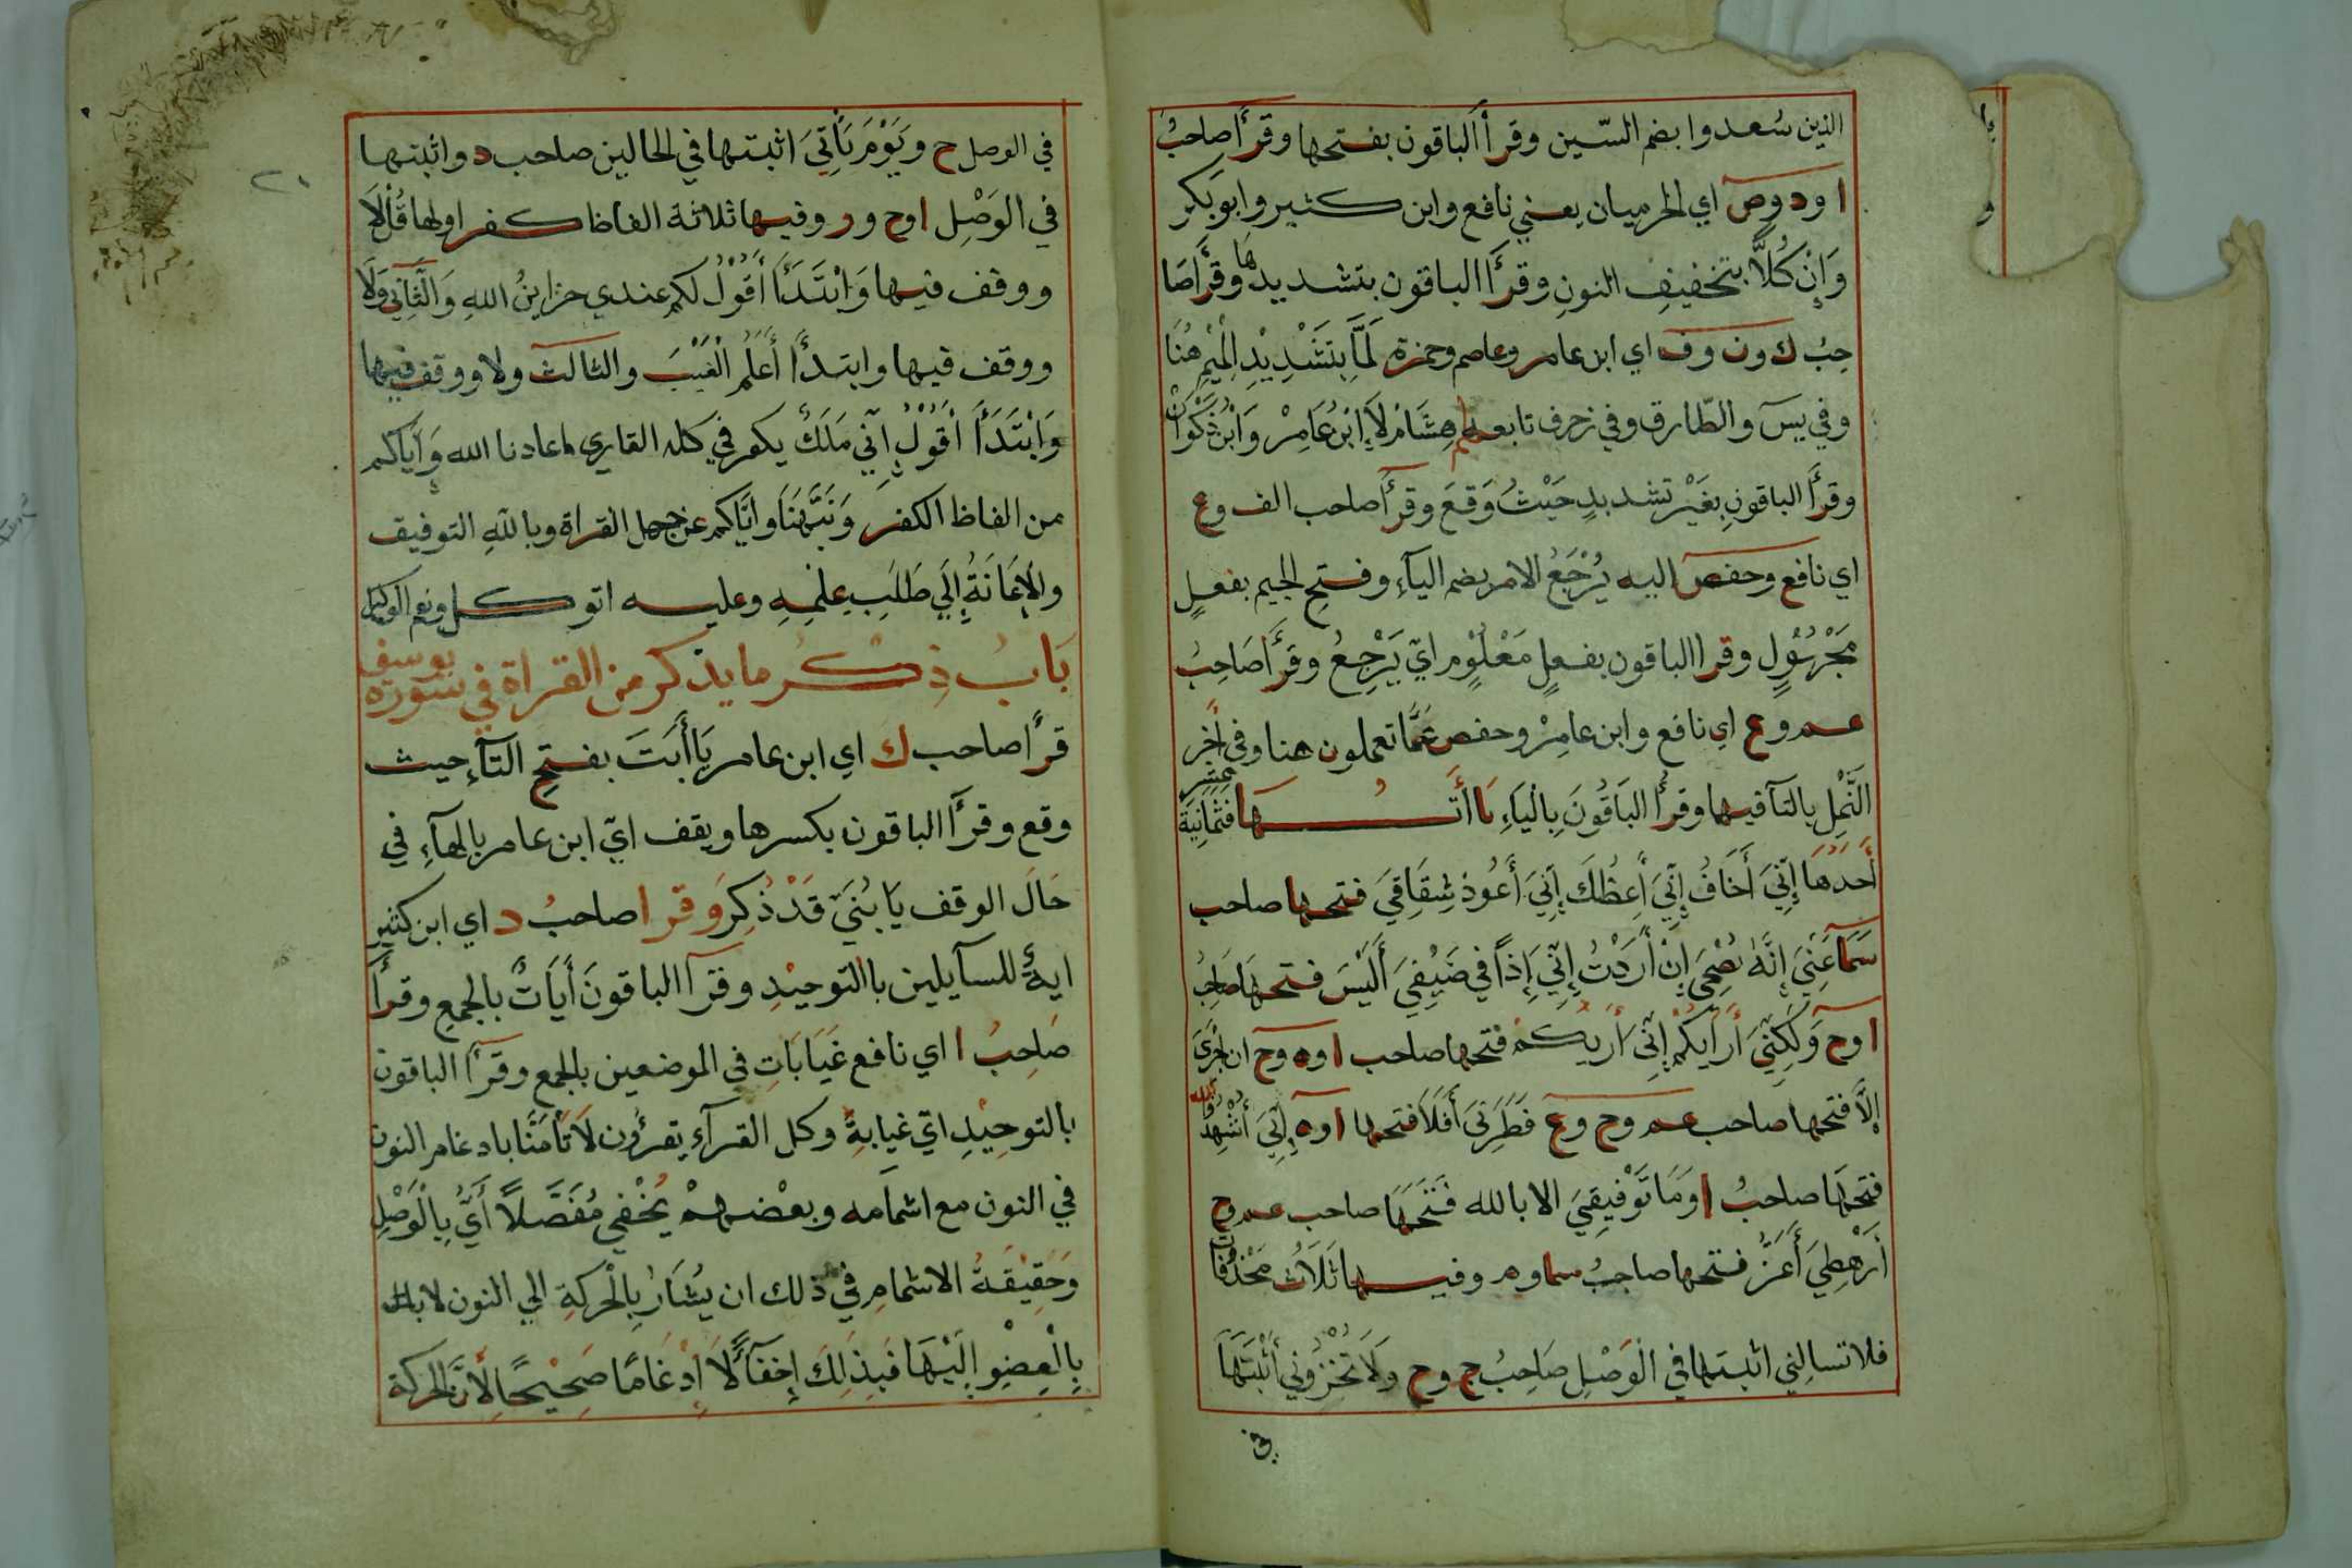 الذين سُعدوا بضم السّين وقرأ الباقون بفتحها وقرأ صاحبُ
ا ود وص اي الحرميان يعني نافع وابن كثير وابو بكر
وَاِنْ كُلاًّ بتخفيفِ النونِ وقرأ الباقون بتشديدها وقرأ صَا
حِبُ ك ون وف اي ابن عامر وعاصم وحمزة لَمَّا بِتَشْدِيْدِ الْمِيْمِ هُنَا
وفي يسَ والطّارق وفي زخرف تابعهم هِشَامْ لَا اِبْنُ عَامِرْ وَابْنُ ذَكْوَانْ
وقرأَ الباقونِ بِغَيْرِ تشديدٍ حَيْثُ وَقعَ وقرأ صاحب الف وع
اي نافع وحفص اليه يُرْجَعُ الامر بضم اليآءِ وفتحِ الجيم بفعلٍ
مَجْهُوْلٍ وقرا الباقون بفعلٍ مَعْلُوْمٍ ايّ يَرْجِعُ وقرأَ صَاحِبُ
عم وع اي نافع وابن عامِرْ وحفص عَمَّا تعملون هنا وفى اٰخِر
النَّمْلِ بالتآ فيها وقرأَ البَاقُونَ بِالْيَاءِ يَا اٰتُـــهَا فثمَانِيَةَ عَشِر
أَحَدُهَا اِنِّيَ أَخَافُ اِنِّيَ أَعِظُكَ اِنِّيَ أَعُوذ شِقَاقِيَ فتحها صاحب
سَمَا عَنِّيَ اِنَّهُ نُصْحِيَ اِنْ أَرَدْتُ اِنِّيَ اِذًا في ضَيْفِيَ أَلَيْسَ فتحهَا صَاحِبُ
ا وح وَلَكِنِّيَ أَرَايكُمْ اِنِّيَ أَرَيكُمْ فتحها صاحب ا وه وح ان اَجْرِيَ
اِلاَّ فتحها صاحب عم وح وع فَطَرَنِيَ أَفَلَا فتحها ا وه اِنِّيَ أُشْهِدُ الله
فتحهَا صاحبُ ا وَمَا تَوْفِيقِيَ الا بالله فَتَحَهَا صاحب عم وح
أَرَهْطِيَ أَعَزُّ فتحها صاحِبُ سما وم وفيها ثَلَاثُ مَحْذُوْفَاتٍ
فلا تسالني اثبتها في الْوَصْلِ صَاحِبُ ج وح وَلَا تُخْزُوْنِي أَثْبَتَهَا
في
٢٠
في الوصل ح وَيَوْمَ يَأْتِيَ اثبتها في الحالين صاحب د واثبتها
في الوَصْلِ ا وح ور وفيها ثلاثة الفاظ كفر اولها قُلْ لَا
ووقف فيها وَابْتَدَأَ أَقُوْلُ لكم عندي خزاينُ الله وَالثَّاني وَلَا
ووقف فيها وابتدأ أَعْلَمُ الْغَيْبَ والثالث ولا ووقف فيها
وَابْتَدَأَ أَقُوْلُ اِنِّي مَلَكٌ يكفر في كله القاري اعاذنا الله وَاِيَّاكم
من الفاظ الكفر وَنَبَّهَنَا وايّاكم عن جهل القراة وبالله التوفيق
والاِعَانَةُ اِلَي طَلَبِ عِلْمِهِ وعليه اتوكل ونعم الوكيل
بَابُ ذِكْرُ ما يذكر من القراة في سورة يوسف
قرأ صاحب ك اي ابن عامر يَا أَبَتَ بفتحِ التآءِ حيث
وقع وقرأ الباقون بكسرها ويقف ايّ ابن عامر بالهآءِ في
حَالَ الوقف يَا بُنَيَّ قَدْ ذُكِرَ وَقرا صاحبُ د اي ابن كثير
ايةٌ للسآيلين باالتوحيْدِ وقرآ الباقونَ أَيَاتٌ بالجمعِ وقرأ
صَاحِبُ ا اي نافع غَيَابَاتِ في الموضعين بالجمع وقرأ الباقون
بالتوحِيْدِ ايّ غيابةٍ وكل القرآء يقرؤن لَا تَأْمَنَّا بادغام النون
في النون مع اشمامه وبعْضهمْ يُخْفي مُفَصَّلًا أَيّ بِالْوَصْلِ
وَحَقِيْقَةُ الاشمامِ في ذلك ان يُشَارَ بِالْحركَةِ الي النون لا
بِالْعضْوِ اِلَيْهَا فَبِذلِكَ اِخفآءً لَا اِدْغَامًا صَحِيْحًا لِأَنَّ الحركة